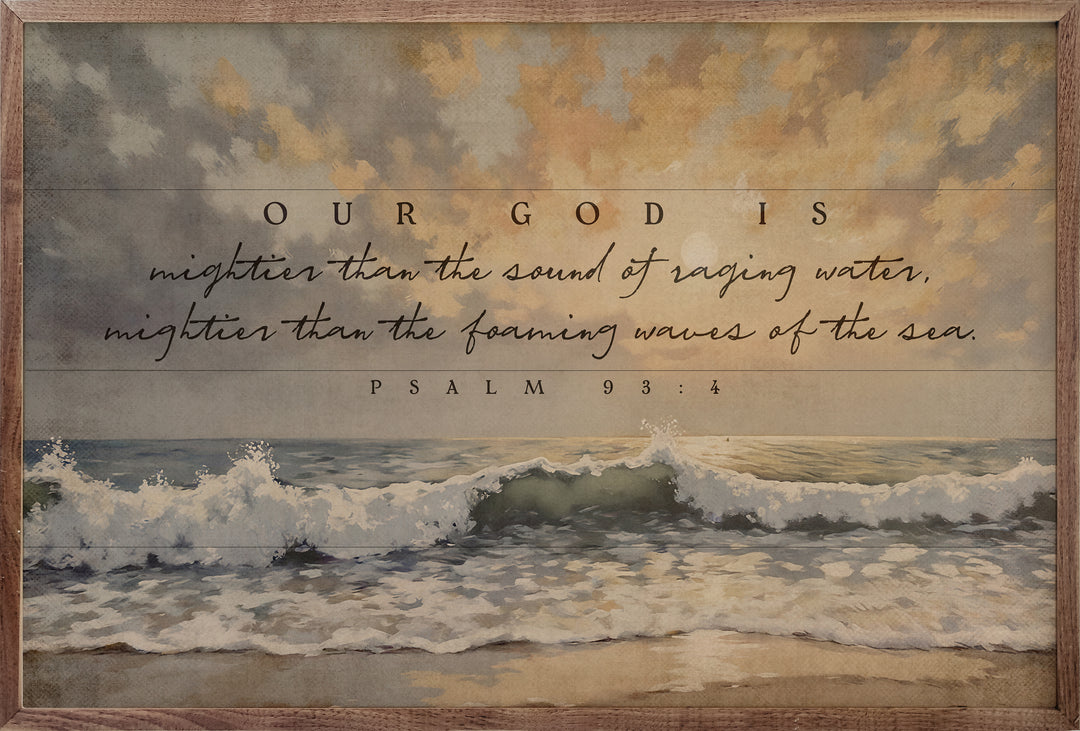 OUR GOD IS
mightier than the sound of raging water,
mightier than the foaming waves of the sea.
PSALM 93:4